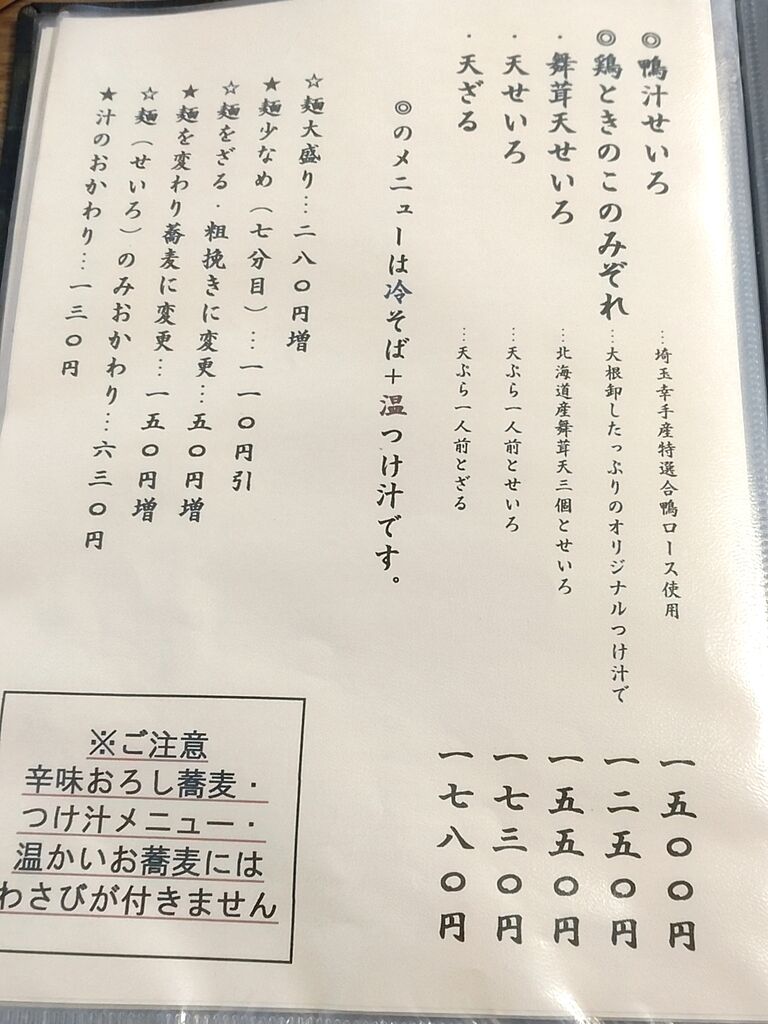 ◎鴨汁せいろ …埼玉幸手産特選合鴨ロース使用 一五〇〇円
◎鶏ときのこのみぞれ …大根卸したっぷりのオリジナルつけ汁で 一二五〇円
・舞茸天せいろ …北海道産舞茸天三個とせいろ 一五五〇円
・天せいろ …天ぷら一人前とせいろ 一七三〇円
・天ざる …天ぷら一人前とざる 一七八〇円
◎のメニューは冷そば＋温つけ汁です。
☆麺大盛り…二八〇円増
★麺少なめ（七分目）…一一〇円引
☆麺をざる・粗挽きに変更…五〇円増
★麺を変わり蕎麦に変更…一五〇円増
☆麺（せいろ）のみおかわり…六三〇円
★汁のおかわり…一三〇円
※ご注意
辛味おろし蕎麦・
つけ汁メニュー・
温かいお蕎麦には
わさびが付きません